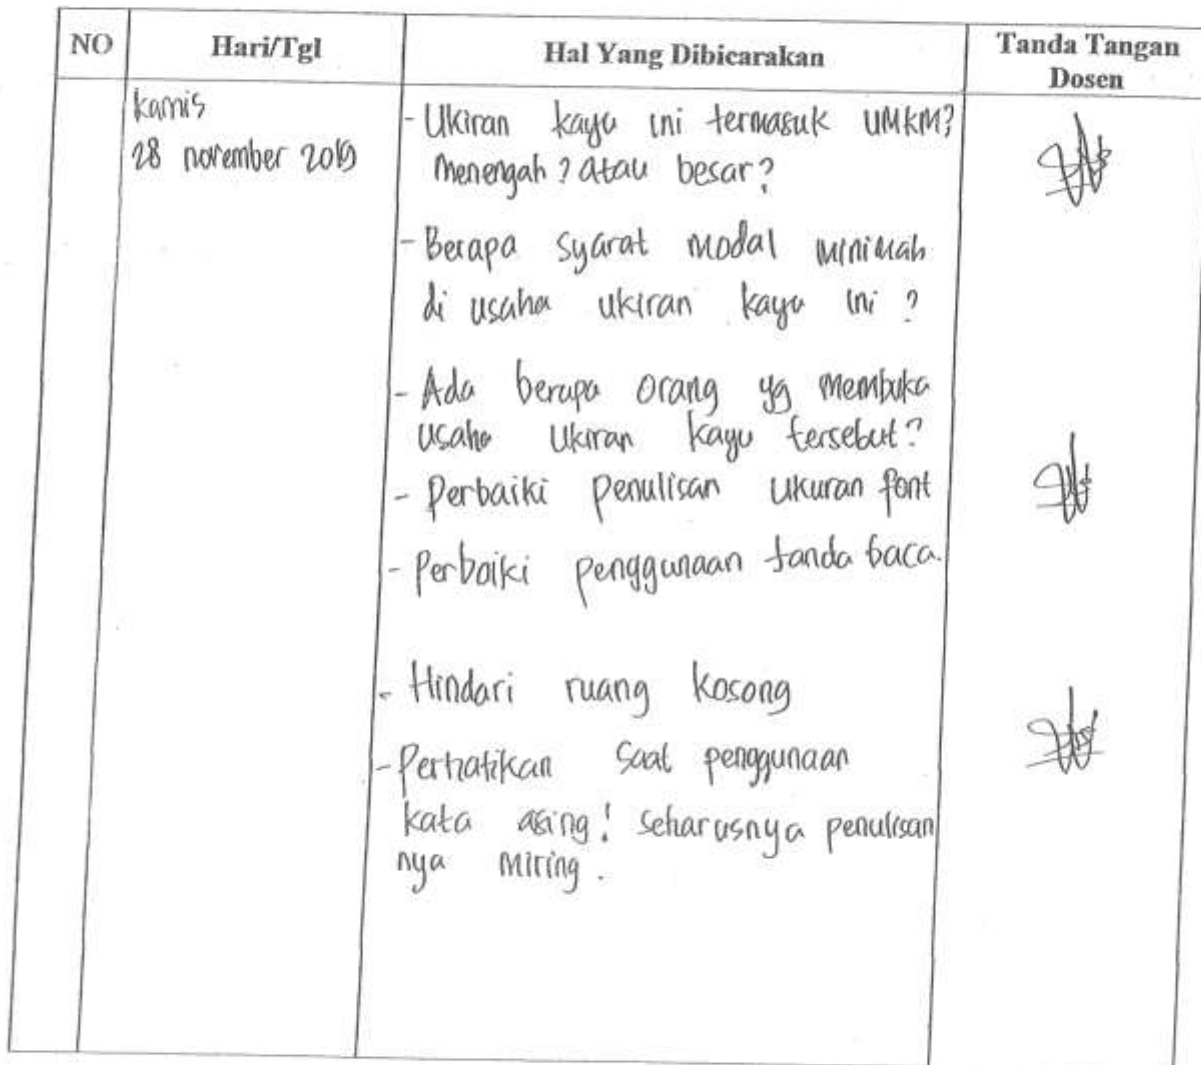 NO Hari/Tgl Hal Yang Dibicarakan Tanda Tangan Dosen
kamis
28 november 2019
- Ukiran kayu ini termasuk UMKM?
menengah? atau besar?
- Berapa syarat modal minimah
di usaha ukiran kayu ini ?
- Ada berapa orang yg membuka
usaha ukiran kayu tersebut?
- Perbaiki penulisan ukuran font
- Perbaiki penggunaan tanda baca.
- Hindari ruang kosong
- Perhatikan saat penggunaan
kata asing! seharusnya penulisan
nya miring.